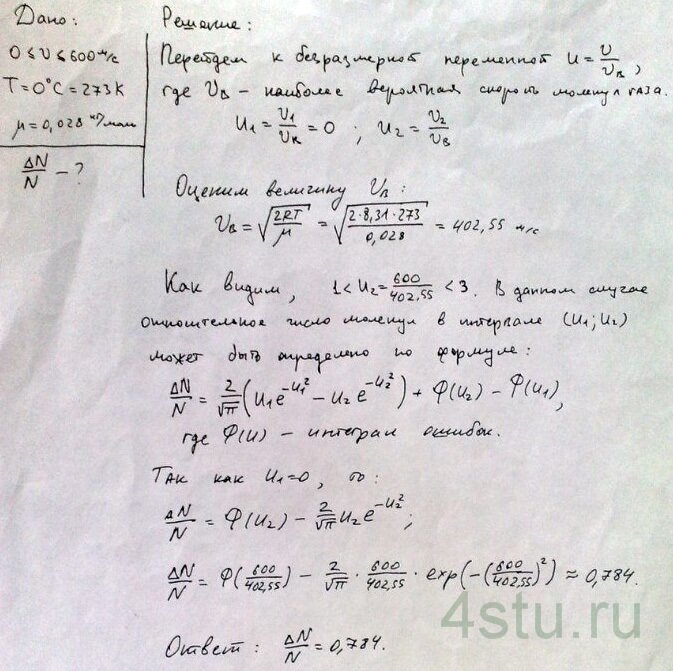 Дано:
0 ≤ υ ≤ 600 м/с
T = 0°C = 273 K
μ = 0,028 кг/моль
ΔN/N – ?
Решение:
Перейдем к безразмерной переменной u = υ/υв,
где υв – наиболее вероятная скорость молекул газа.
u₁ = υ₁/υв = 0 ; u₂ = υ₂/υв
Оценим величину υв :
υв = √(2RT/μ) = √(2·8,31·273/0,028) = 402,55 м/с
Как видим, 1 < u₂ = 600/402,55 < 3. В данном случае
относительное число молекул в интервале (u₁; u₂)
может быть определено по формуле:
ΔN/N = 2/√π (u₁e^(-u₁²) – u₂e^(-u₂²)) + Φ(u₂) – Φ(u₁),
где Φ(u) – интеграл ошибок.
Так как u₁=0, то:
ΔN/N = Φ(u₂) – 2/√π u₂e^(-u₂²);
ΔN/N = Φ(600/402,55) – 2/√π · 600/402,55 · exp(-(600/402,55)²) ≈ 0,784.
Ответ: ΔN/N = 0,784.
4stu.ru